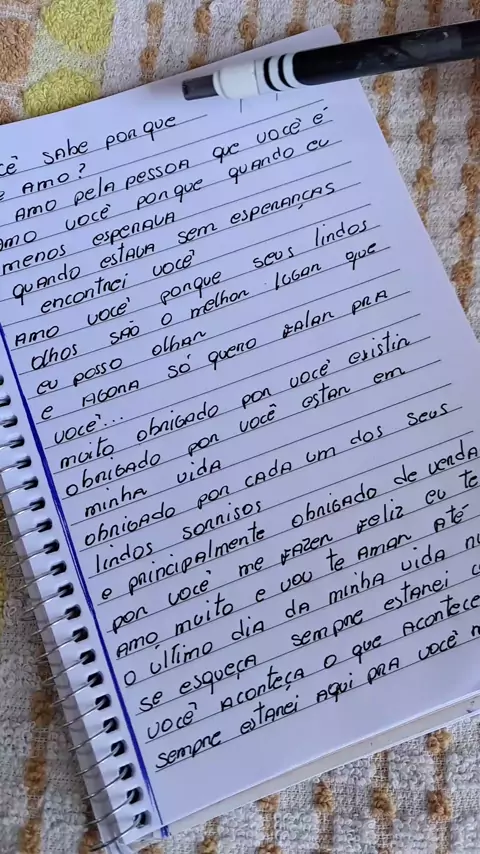 cê sabe porque
e amo?
amo pela pessoa que você é
amo você porque quando eu
menos esperava
quando estava sem esperanças
encontrei você
amo você porque seus lindos
olhos são o melhor lugar que
eu posso olhar
e agora só quero falar pra
você...
muito obrigado por você existir
obrigado por você estar em
minha vida
obrigado por cada um dos seus
lindos sorrisos
e principalmente obrigado de verda
por você me fazer feliz eu te
amo muito e vou te amar até
o último dia da minha vida n
se esqueça sempre estarei c
você aconteça o que acontece
sempre estarei aqui pra você